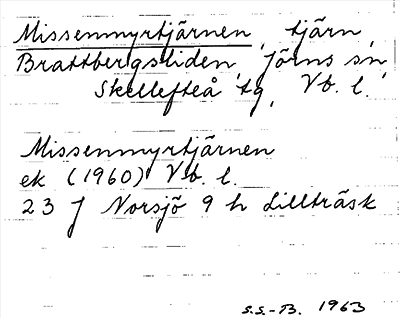 Missenmyrtjärnen, tjärn,
Brattbergsliden, Jörns sn,
Skellefteå tg, Vb. l.
Missenmyrtjärnen
ek (1960) Vb. l.
23 J Norsjö 9 h Lillträsk
S.S.-B. 1963